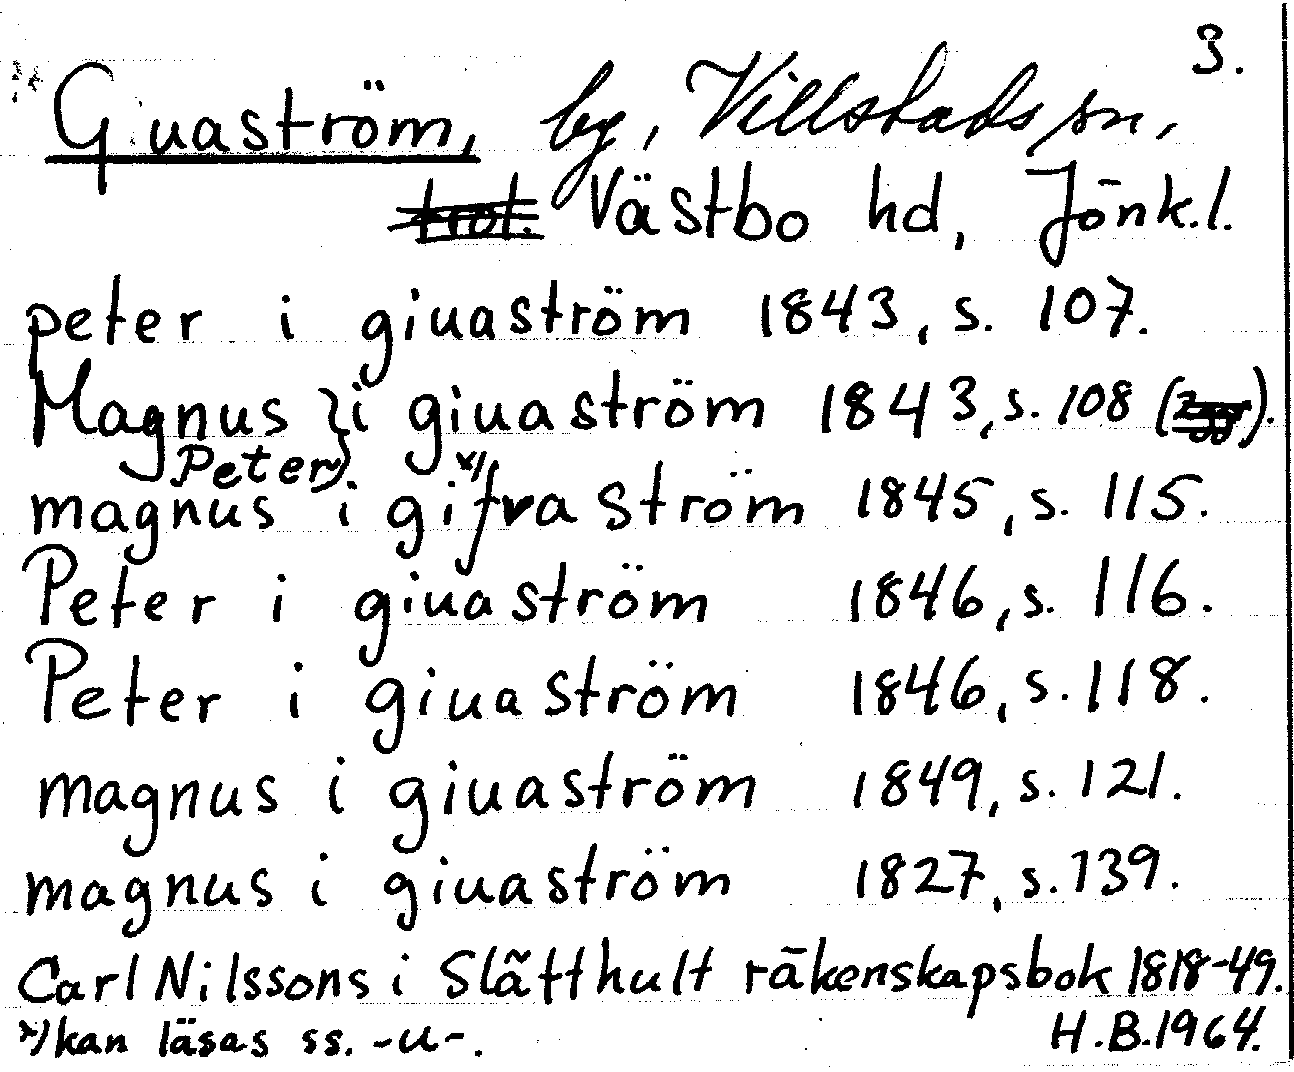 3.
Guaström, by, Villstads sn,
Västbo hd, Jönk.l.
peter i giuaström 1843, s. 107.
Magnus } i giuaström 1843, s. 108 ( ).
Peter
magnus i gifvaström x) 1845, s. 115.
Peter i giuaström 1846, s. 116.
Peter i giuaström 1846, s. 118.
magnus i giuaström 1849, s. 121.
magnus i giuaström 1827, s. 139.
Carl Nilssons i Slätthult räkenskapsbok 1818-49.
x) kan läsas ss. -u-. H.B. 1964.